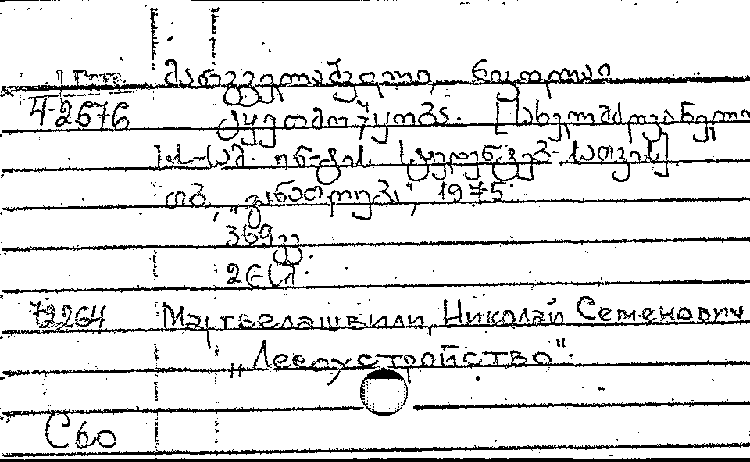 მათგველაშვილი, ნიკოლაი
4-2676 ტყეთმოწყობა. [სახელმძღვანელო
ს.-სამ. ინ-ტის სტუდენტებ. სათვის]
თბ., „განათლება", 1975.
369 გვ.
72264 Матвелашвили, Николай Семенович
„Лесоустройство".
С60